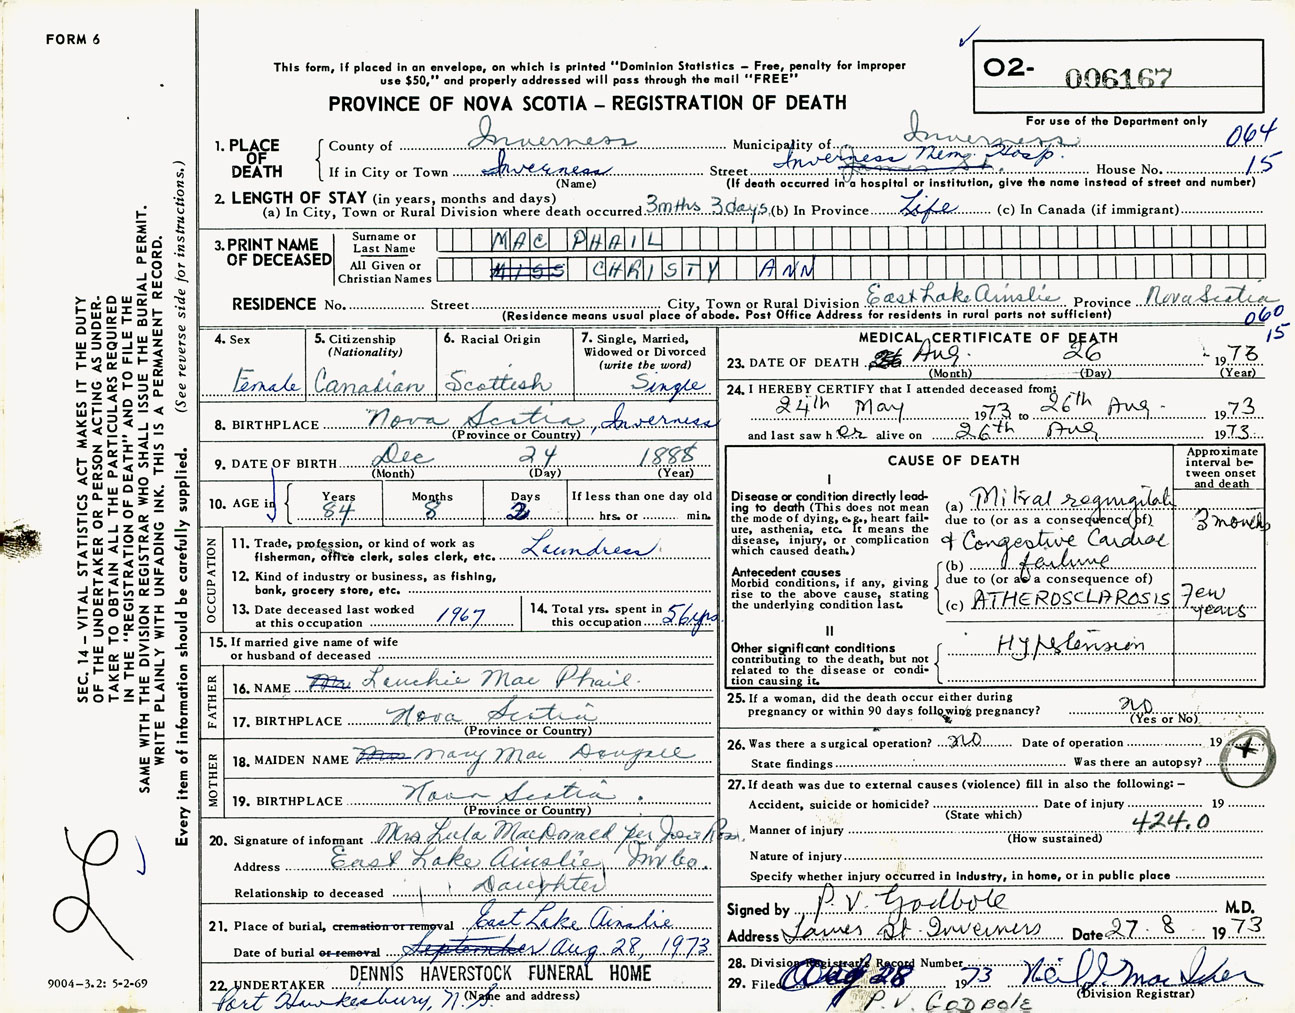 FORM 6
This form, if placed in an envelope, on which is printed "Dominion Statistics – Free, penalty for improper
use $50," and properly addressed will pass through the mail "FREE"
PROVINCE OF NOVA SCOTIA – REGISTRATION OF DEATH
O2- 006167
For use of the Department only
064
15
1. PLACE OF DEATH
County of Inverness Municipality of Inverness
If in City or Town Inverness Street Inverness Mem. Hosp. House No.
(Name) (If death occurred in a hospital or institution, give the name instead of street and number)
2. LENGTH OF STAY (in years, months and days)
(a) In City, Town or Rural Division where death occurred 3mths 3days (b) In Province Life (c) In Canada (if immigrant)
3. PRINT NAME OF DECEASED
Surname or Last Name MAC PHAIL
All Given or Christian Names MISS CHRISTY ANN
RESIDENCE No. Street City, Town or Rural Division East Lake Ainslie Province Nova Scotia
(Residence means usual place of abode. Post Office Address for residents in rural parts not sufficient)
060
15
4. Sex
Female
5. Citizenship
(Nationality)
Canadian
6. Racial Origin
Scottish
7. Single, Married,
Widowed or Divorced
(write the word)
Single
8. BIRTHPLACE Nova Scotia, Inverness
(Province or Country)
9. DATE OF BIRTH Dec 24 1888
(Month) (Day) (Year)
10. AGE in
Years Months Days If less than one day old
84 8 2 hrs. or min.
OCCUPATION
11. Trade, profession, or kind of work as
fisherman, office clerk, sales clerk, etc. Laundress
12. Kind of industry or business, as fishing,
bank, grocery store, etc.
13. Date deceased last worked
at this occupation 1967
14. Total yrs. spent in
this occupation 56yrs
15. If married give name of wife
or husband of deceased
FATHER
16. NAME Mr Lauchie Mac Phail.
17. BIRTHPLACE Nova Scotia
(Province or Country)
MOTHER
18. MAIDEN NAME Mrs Mary Mac Dougall
19. BIRTHPLACE Nova Scotia.
(Province or Country)
20. Signature of informant Mrs Lula MacDonald per Josie
Address East Lake Ainslie Inv Co.
Relationship to deceased Daughter
21. Place of burial, cremation or removal East Lake Ainslie
Date of burial or removal September Aug 28, 1973
DENNIS HAVERSTOCK FUNERAL HOME
22. UNDERTAKER
(Name and address)
Port Hawkesbury, N.S.
MEDICAL CERTIFICATE OF DEATH
23. DATE OF DEATH Aug. 26 1973
(Month) (Day) (Year)
24. I HEREBY CERTIFY that I attended deceased from:
24th May 1973 to 26th Aug. 1973
and last saw her alive on 26th Aug 1973.
CAUSE OF DEATH
Approximate
interval be-
tween onset
and death
I
Disease or condition directly lead-
ing to death (This does not mean
the mode of dying, e.g., heart fail-
ure, asthenia, etc. It means the
disease, injury, or complication
which caused death.)
(a) Mitral regurgitation
due to (or as a consequence of)
3 months
& Congestive Cardiac
(b) failure
due to (or as a consequence of)
Antecedent causes
Morbid conditions, if any, giving
rise to the above cause, stating
the underlying condition last.
(c) ATHEROSCLAROSIS
Few
years
II
Other significant conditions
contributing to the death, but not
related to the disease or condi-
tion causing it.
Hypertension
25. If a woman, did the death occur either during
pregnancy or within 90 days following pregnancy? no
(Yes or No)
26. Was there a surgical operation? no Date of operation 19
State findings Was there an autopsy?
27. If death was due to external causes (violence) fill in also the following: –
Accident, suicide or homicide? Date of injury 19
(State which)
Manner of injury 424.0
(How sustained)
Nature of injury
Specify whether injury occurred in industry, in home, or in public place
Signed by P. V. Godbole M.D.
Address James St. Inverness Date 27. 8 1973
28. Division Registrar's Record Number
29. Filed Aug 28 1973
(Division Registrar)
P.V. GODBOLE
SEC. 14 – VITAL STATISTICS ACT MAKES IT THE DUTY
OF THE UNDERTAKER OR PERSON ACTING AS UNDER-
TAKER TO OBTAIN ALL THE PARTICULARS REQUIRED
IN THE "REGISTRATION OF DEATH" AND TO FILE THE
SAME WITH THE DIVISION REGISTRAR WHO SHALL ISSUE THE BURIAL PERMIT.
WRITE PLAINLY WITH UNFADING INK. THIS IS A PERMANENT RECORD.
Every item of information should be carefully supplied. (See reverse side for instructions.)
9004-3.2: 5-2-69